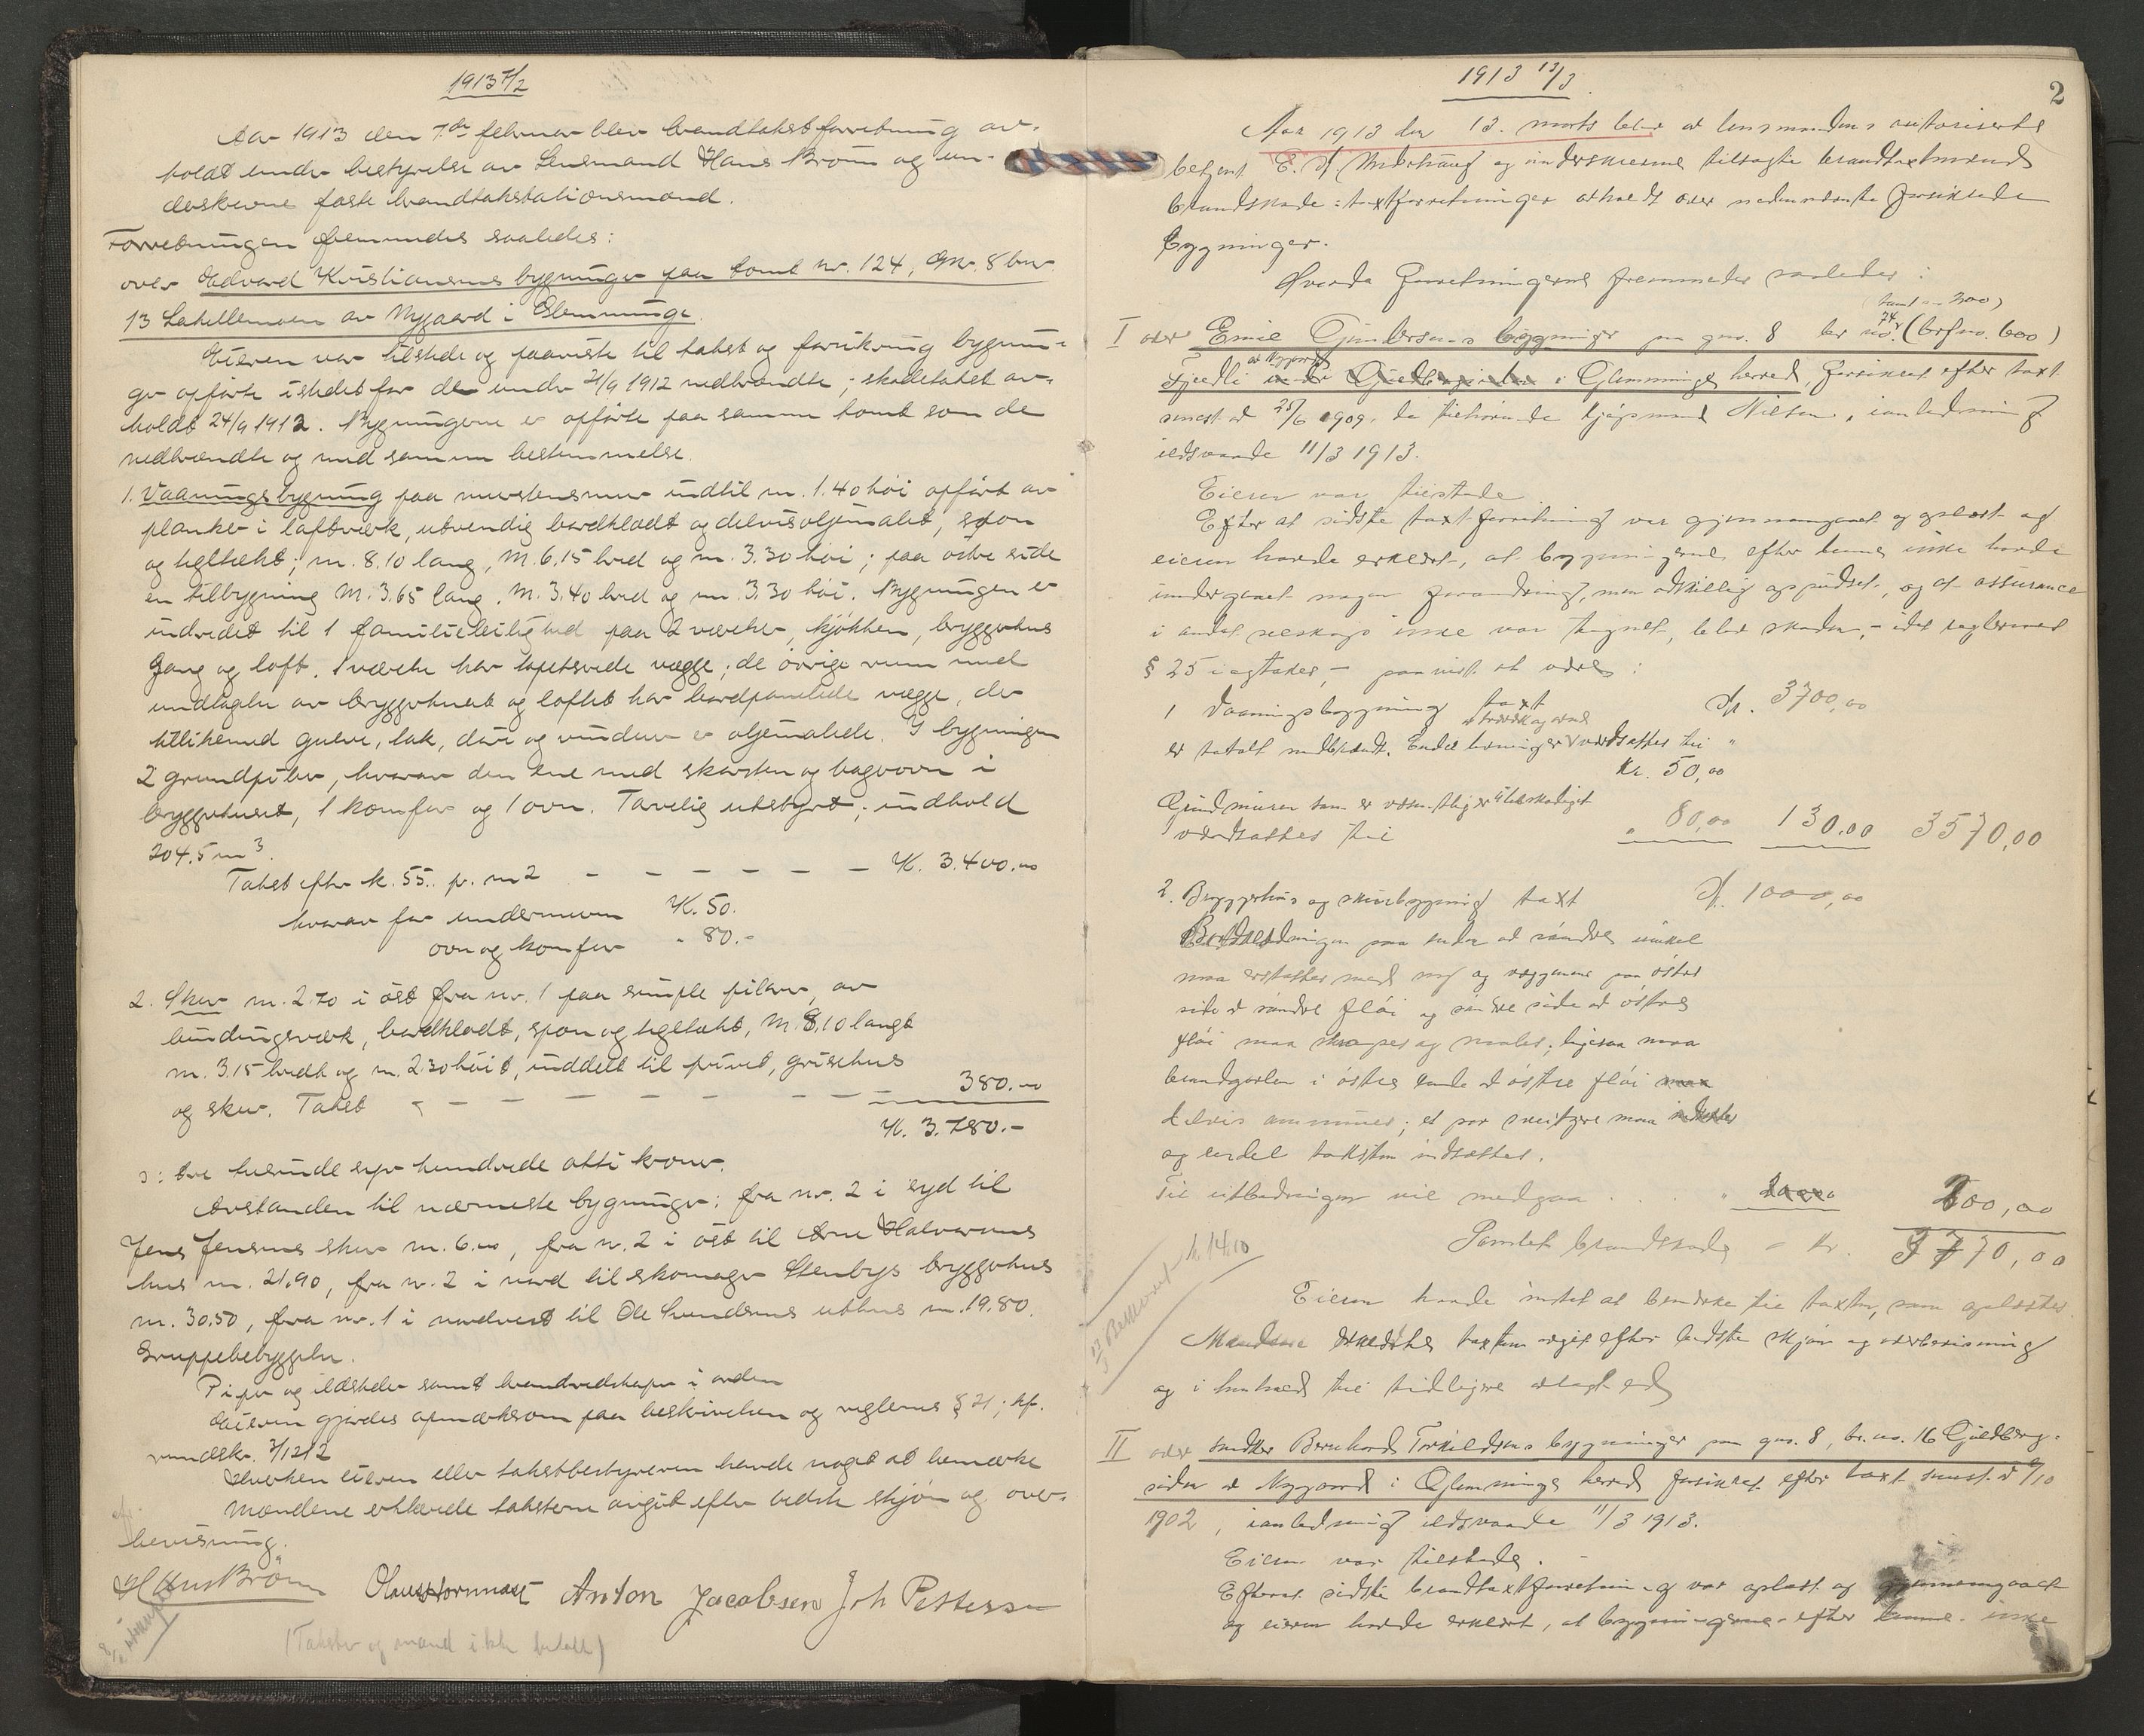 1913 7/2
Aar 1913 den 7de februar blev brandtakstforretning av-
holdt under bestyrelse av Lensmand Hans Brøm og un-
derskrevne faste brandtakstationsmænd.
Forretningen fremmedes saaledes:
over Edvard Kristiansens bygninger paa tomt nr. 124, Gnr. 8 bnr.
13 Labellemoen av Nygaard i Glemminge.
Eieren var tilstede og paaviste til takst og forsikring bygnin-
ger opførte istedetfor de under 21/9 1912 nedbrændte; skadetakst av-
holdt 24/9 1912. Bygningerne er opførte paa samme tomt som de
nedbrændte og med samme bestemmelse.
1. Vaaningsbygning paa murstensmur indtil m. 1.40 høi opført av
planker i laftverk, utvendig bordklædt og delvis oljemalet, spon
og tegltækt; m. 8.10 lang, m. 6.15 bred og m. 3.30 høi; paa østre side
en tilbygning m. 3.65 lang, m. 3.40 bred og m. 3.30 høi. Bygningen er
indredet til 1 familieleilighed paa 2 værelser, kjøkken, bryggehus
gang og loft. 1 værelse har tapetserede vægge; de øvrige rum med
undtagelse av bryggehuset og loftet har bordpanelede vægge, der
tillikemed gulve, tak, døre og vinduer er oljemalede. I bygningen
2 grundpiber, hvorav den ene med skorsten og bagerovn i
bryggehuset, 1 komfur og 1 ovn. Tarvelig utstyret; indhold
204.5 m3.
Takst efter k. 55.. pr. m2 - - - - - - K. 3.400.00
hvorav for undermuren K. 50.
ovn og komfur " 80.-
2. Skur m. 2.70 i øst fra nr. 1 paa simple pilarer, av
bindingsverk, bordklædt, spon og tegltækt, m. 8.10 langt
m. 3.15 bredt og m. 2.30 høit, inddelt til privet, grisehus
og skur. Takst - - - - - - - - 380.00
K. 3.780.-
ɔ: tre tusinde syv hundrede otti kroner.
Avstanden til nærmeste bygninger: fra nr. 2 i syd til
Jens Jensens skur m. 6.00, fra nr. 2 i øst til Arne Halvorsens
hus m. 21.90, fra nr. 2 i nord til skomager Stenbys bryggehus
m. 30.50, fra nr. 1 i nordvest til Ole Gundersens uthus m. 19.80.
Gruppebebyggelse.
Piper og ildsteder samt brandredskaper i orden
Eieren gjordes opmerksom paa beskrivelsen og reglernes § 21; kfr.
rundskr. 2/12 12
Hverken eieren eller takstbestyreren havde noget at bemerke
Mændene erklærede taksterne avgit efter bedste skjøn og over-
bevisning.
Hans Brøm Olaus Hornnæs Anton Jacobsen Joh Pettersen
(Takster og mænd ikke betalt)
1913 13/3
2
Aar 1913 den 13. marts blev av lensmandens autoriserte
betjent E. A. og underskrevne tilsagte brandtaxtmænd
brandskade-taxtforretninger avholdt over nedennævnte forsikrede
bygninger.
Hvorda forretningerne fremmedes saaledes:
(tomt nr 300)
I over Emil Gundersens bygninger paa gno. 8 br no. 74 (brfno. 600)
Fjeldli av Nygaard i Glemminge herred, forsikret efter taxt
senest av 25/6 1909, da tilhørende kjøpmand Nilsen, i anledning
ildsvaade 11/3 1913.
Eieren var tilstede.
Efter at sidste taxtforretning var gjennemgaaet og oplæst og
eieren havde erklært, at bygningerne efter denne ikke havde
undergaaet nogen forandring, men adskillig oppudset, og at assurance
i andet selskap ikke var tegnet, blev skaden, - idet reglernes
§ 25 iagttakes, - paavist at være:
1 Vaaningsbygning taxt Kr. 3700,00
er totalt nedbrændt. Endel levninger av træverk og ovne værdsættes til "
Kr. 50,00
Grundmuren som er væsentlig er ubeskadiget
værdsættes til " 80,00 130,00 3570,00
2. Bryggerhus og skurbygning taxt Kr. 1000,00
Bordklædningen paa enden av søndre vinkel
maa erstattes med ny og væggene paa østre
side av søndre fløi og søndre side av østre
fløi maa skrapes og males; ligesaa maa
brandgavlen i østre ende av østre fløi
delvis ommures; et par sperrer maa indsættes
og endel taksten indsættes.
Til utbedringen vil medgaa . . . " 200,00
Samlet brandskade = Kr. 3770,00
13/3 Bekkevold k. 14.10
Eieren havde intet at bemerke til taxten, som oplæstes.
Mændene erklærte taxten avgit efter bedste skjøn og overbevisning
og i henhold til tidligere avlagt ed
II over snedker Bernhard Torkildsens bygninger paa gno. 8, br. no. 16 Guldberg-
siden av Nygaard i Glemminge herred forsikret efter taxt senest av 9/10
1902, i anledning ildsvaade 11/3 1913.
Eieren var tilstede.
Efterat sidste brandtaxtforretning var oplæst og gjennemgaaet
og eieren havde erklært, at bygningerne efter denne ikke